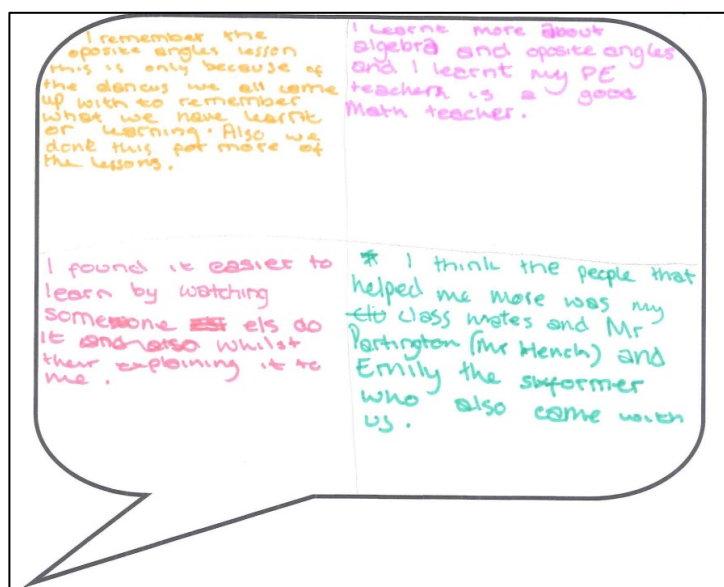 I remember the
oposite angles lesson
this is only because of
the dances we all come
up with to remember
what we have learnt
or learning. Also we
done this for more of
the lessons.
I learnt more about
algebra and oposite angles
and I learnt my PE
teachers is a good
Math teacher.
I found it easier to
learn by watching
someone els do
it and also whilst
their explaining it to
me.
* I think the people that
helped me more was my
class mates and Mr
Partington (Mr Hench) and
Emily the sixformer
who also came with
us.